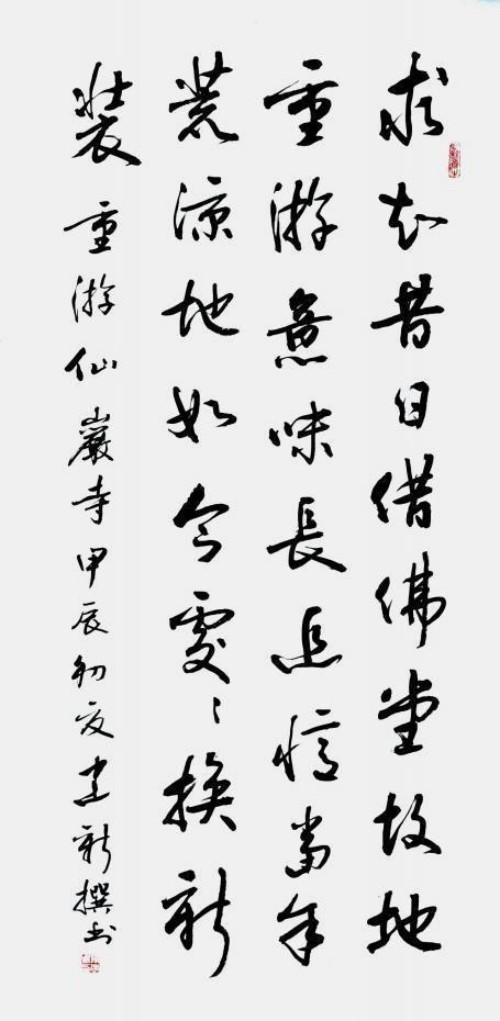 求知昔日借佛堂故地
重游意味長追憶當年
荒涼地如今處〻換新
裝 重游仙巖寺甲辰初夏建新撰书